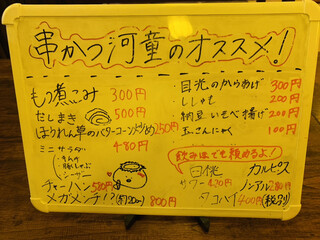 串かつ河童のオススメ！
もつ煮こみ 300円
だしまき 500円
ほうれん草のバターコーン炒め 250円
ミニサラダ 480円
・シーザー
チャーハン 580円
メガメンチ!? (約20cm) 800円
・目光のからあげ 300円
・ししゃも 200円
・納豆いそべ揚げ 200円
・玉こんにゃく 100円
飲みほでも頼めるよ！
カルピス
サワー 420円
ノンアル 280円
400円 (税別)